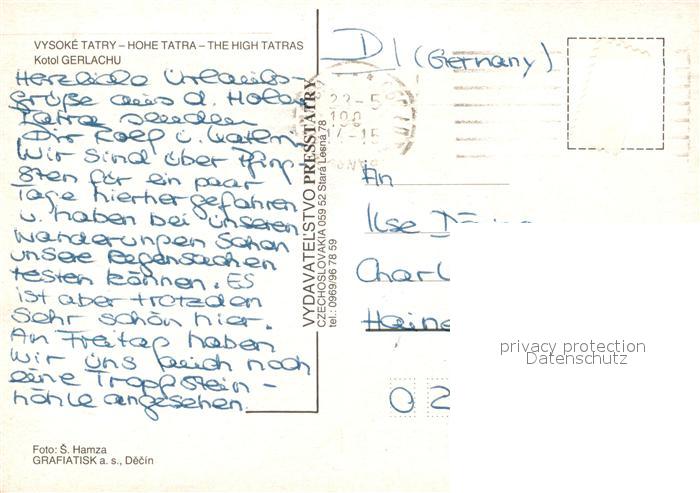 VYSOKÉ TATRY – HOHE TATRA – THE HIGH TATRAS
Kotol GERLACHU
Herzliche Urlaubs-
grüße aus d. Hohen
Tatra senden
Dir Rolf u.
Wir sind über Pfing-
sten für ein paar
Tage hierher gefahren
u. haben bei unseren
Wanderungen schon
unsere Regensachen
testen können. ES
ist aber trotzdem
Sehr schön hier.
An Freitag haben
wir uns auch noch
eine Tropfstein-
höhle angesehen.
Foto: Š. Hamza
GRAFIATISK a. s., Děčín
VYDAVATEĽSTVO PRESSTATRY
CZECHOSLOVAKIA 059 52 Stará Lesná 78
tel.: 0969/96 78 59
D| (Germany)
22-5
An
Ilse
Charl
Heine
02
privacy protection
Datenschutz